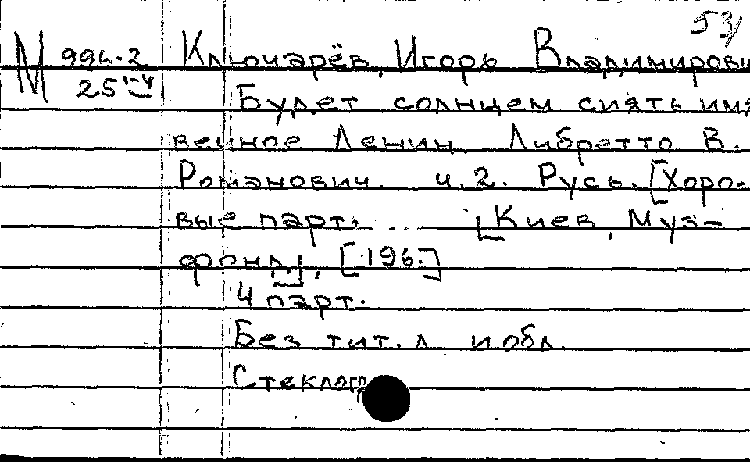 53
М 994-2 Ключарёв, Игорь Владимирови
25 1-4 Будет солнцем сиять имя
вечное Ленин. Либретто В.
Романович. ч. 2. Русь. [Хоро-
вые парт. ... [Киев, Муз-
фонд], [196-]
4 парт.
Без тит. л. и обл.
Стеклогр